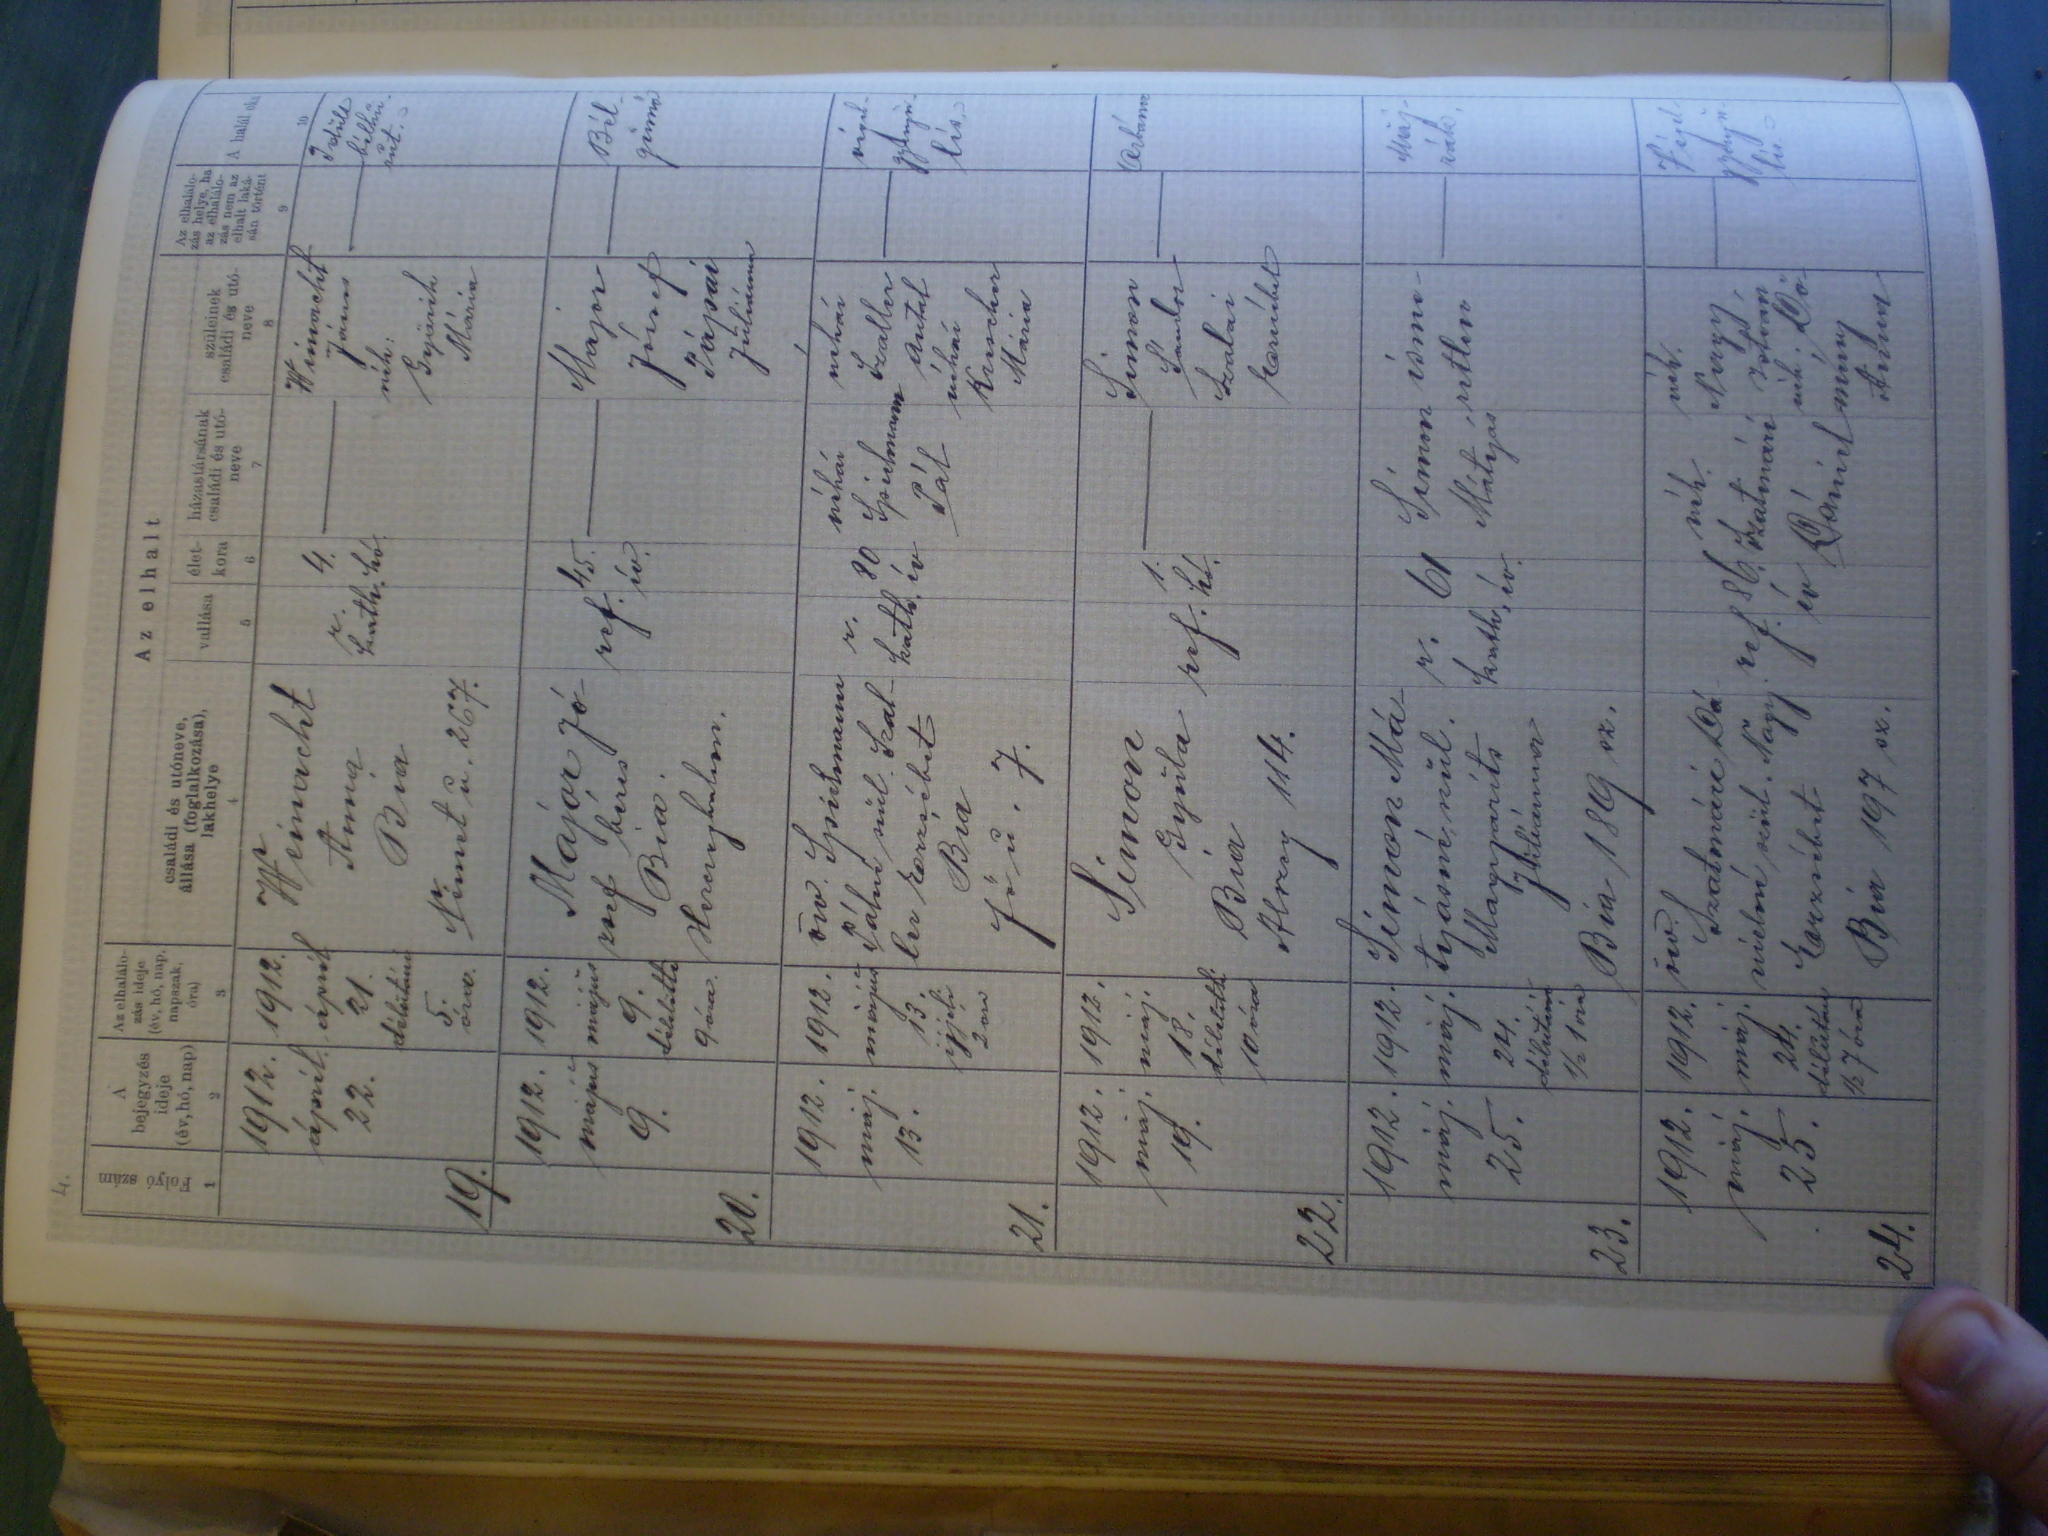 4.
Folyó szám
A
bejegyzés
ideje
(év, hó, nap)
Az elhalálo-
zás ideje
(év, hó, nap,
napszak,
óra)
Az elhalt
családi és utóneve,
állása (foglalkozása),
lakhelye
vallása
élet-
kora
házastársának
családi és utó-
neve
szüleinek
családi és utó-
neve
Az elhalálo-
zás helye, ha
az elhalálo-
zás nem az
elhalt laká-
sán történt
A halál oka
1
2
3
4
5
6
7
8
9
10
19.
1912.
ápril.
22.
1912.
április
21.
délután
5.
óra.
Weinacht
Anna
Bia
Német u. 267.
r.
kath.
4.
hó.
Weinacht
János
néh:
Mária
20.
1912.
május
9.
1912.
május
9.
délelőtt
9 óra.
Major Jó-
zsef béres
Bia.
ref.
45.
év.
Major
József
Pápai
Juliánna
Bél-
21.
1912.
máj.
13.
1912.
május
13.
éjjeli
2 óra
özv. Spielmann
Pálné szül. Szal-
ler Erzsébet
Bia
Fő u. 7.
r.
kath.
80
év
néhai
Spielmann
Pál
néhai
Szaller
Antal
néhai
Mária
végel-
gyengü-
lés
22.
1912.
máj.
19.
1912.
máj.
18.
délelőtt
10 óra
Simon
Gyula
Bia
114.
ref.
1.
hó.
Simon
Sándor
Szalai
Erzsébet
23.
1912.
máj.
25.
1912.
máj.
24.
délután
½ 1 óra
Simon Má-
tyásné, szül.
Margarits
Juliánna
Bia 189 sz.
r.
kath.
61
év.
Simon
Mátyás
isme-
retlen
Máj-
rák.
24.
1912.
máj.
25.
1912.
máj.
24.
délután
½ 7 óra
özv.
Szatmári Dá-
nielné szül. Nagy
Erzsébet
Bia 197 sz.
ref.
86.
év
néh.
Szatmári
Dániel
néh.
Nagy
István
néh.